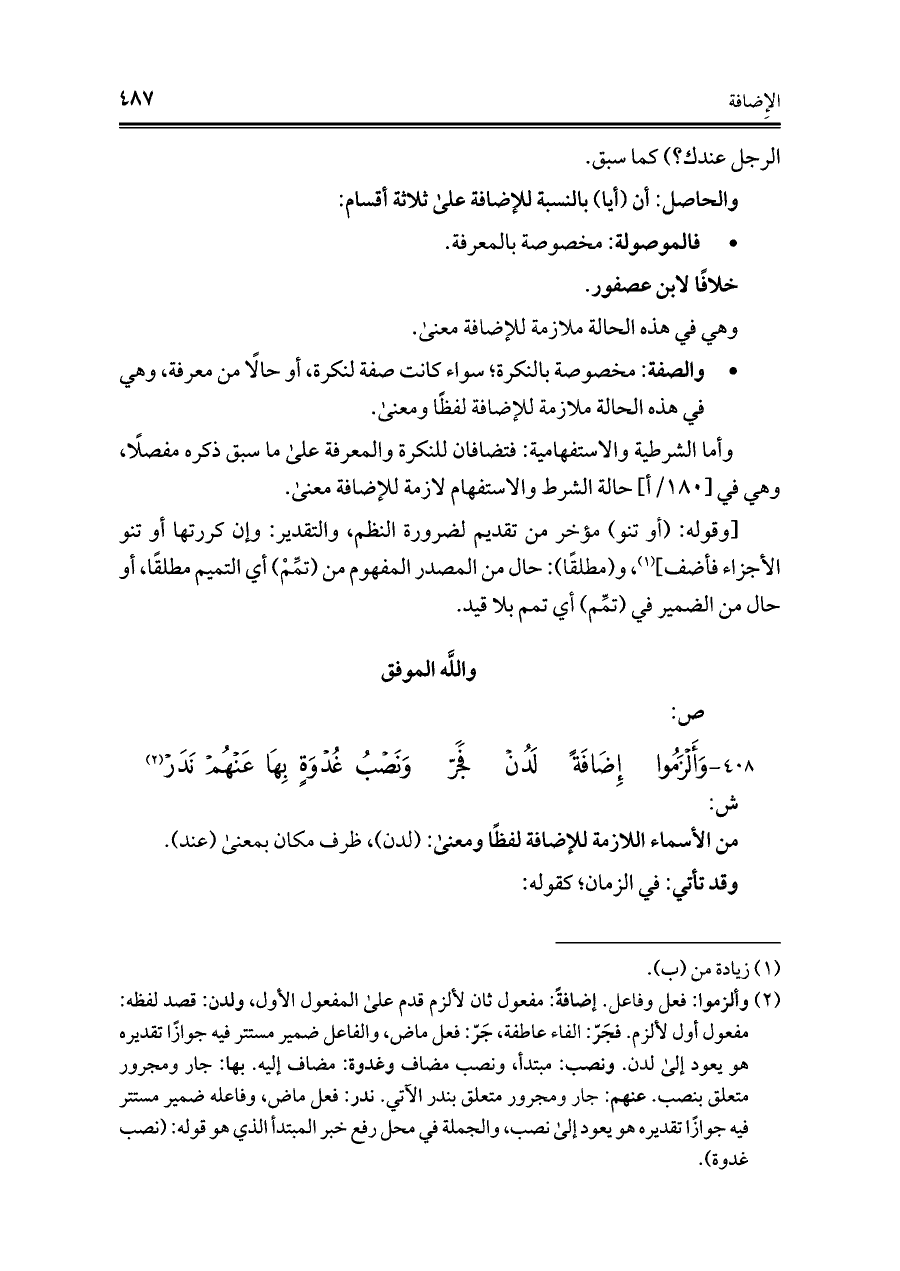 الإِضافة ٤٨٧
الرجل عندك؟) كما سبق.
والحاصل: أن (أيا) بالنسبة للإضافة علىٰ ثلاثة أقسام:
• فالموصولة: مخصوصة بالمعرفة.
خلافًا لابن عصفور.
وهي في هذه الحالة ملازمة للإضافة معنىٰ.
• والصفة: مخصوصة بالنكرة؛ سواء كانت صفة لنكرة، أو حالًا من معرفة، وهي
في هذه الحالة ملازمة للإضافة لفظًا ومعنىٰ.
وأما الشرطية والاستفهامية: فتضافان للنكرة والمعرفة علىٰ ما سبق ذكره مفصلًا،
وهي في [١٨٠/ أ] حالة الشرط والاستفهام لازمة للإضافة معنىٰ.
[وقوله: (أو تنو) مؤخر من تقديم لضرورة النظم، والتقدير: وإن كررتها أو تنو
الأجزاء فأضف](١)، و(مطلقًا): حال من المصدر المفهوم من (تمِّمْ) أي التميم مطلقًا، أو
حال من الضمير في (تمِّم) أي تمم بلا قيد.
واللَّه الموفق
ص:
٤٠٨-وَأَلْزَمُوا إِضَافَةً لَدُنْ فَجَرّ وَنَصْبُ غُدْوَةٍ بِهَا عَنْهُمْ نَدَرْ(٢)
ش:
من الأسماء اللازمة للإضافة لفظًا ومعنىٰ: (لدن)، ظرف مكان بمعنىٰ (عند).
وقد تأتي: في الزمان؛ كقوله:
(١) زيادة من (ب).
(٢) وألزموا: فعل وفاعل. إضافةً: مفعول ثان لألزم قدم علىٰ المفعول الأول، ولدن: قصد لفظه:
مفعول أول لألزم. فجَرّ: الفاء عاطفة، جَرّ: فعل ماض، والفاعل ضمير مستتر فيه جوازًا تقديره
هو يعود إلىٰ لدن. ونصب: مبتدأ، ونصب مضاف وغدوة: مضاف إليه. بها: جار ومجرور
متعلق بنصب. عنهم: جار ومجرور متعلق بندر الآتي. ندر: فعل ماض، وفاعله ضمير مستتر
فيه جوازًا تقديره هو يعود إلىٰ نصب، والجملة في محل رفع خبر المبتدأ الذي هو قوله: (نصب
غدوة).